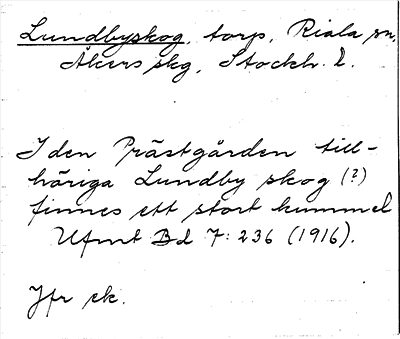 Lundbyskog, torp, Riala sn,
Åkers skg, Stockh. l.
I den Prästgården till-
höriga Lundby skog (?)
finnes ett stort kummel
Ufmt Bd 7: 236 (1916).
Jfr ek.